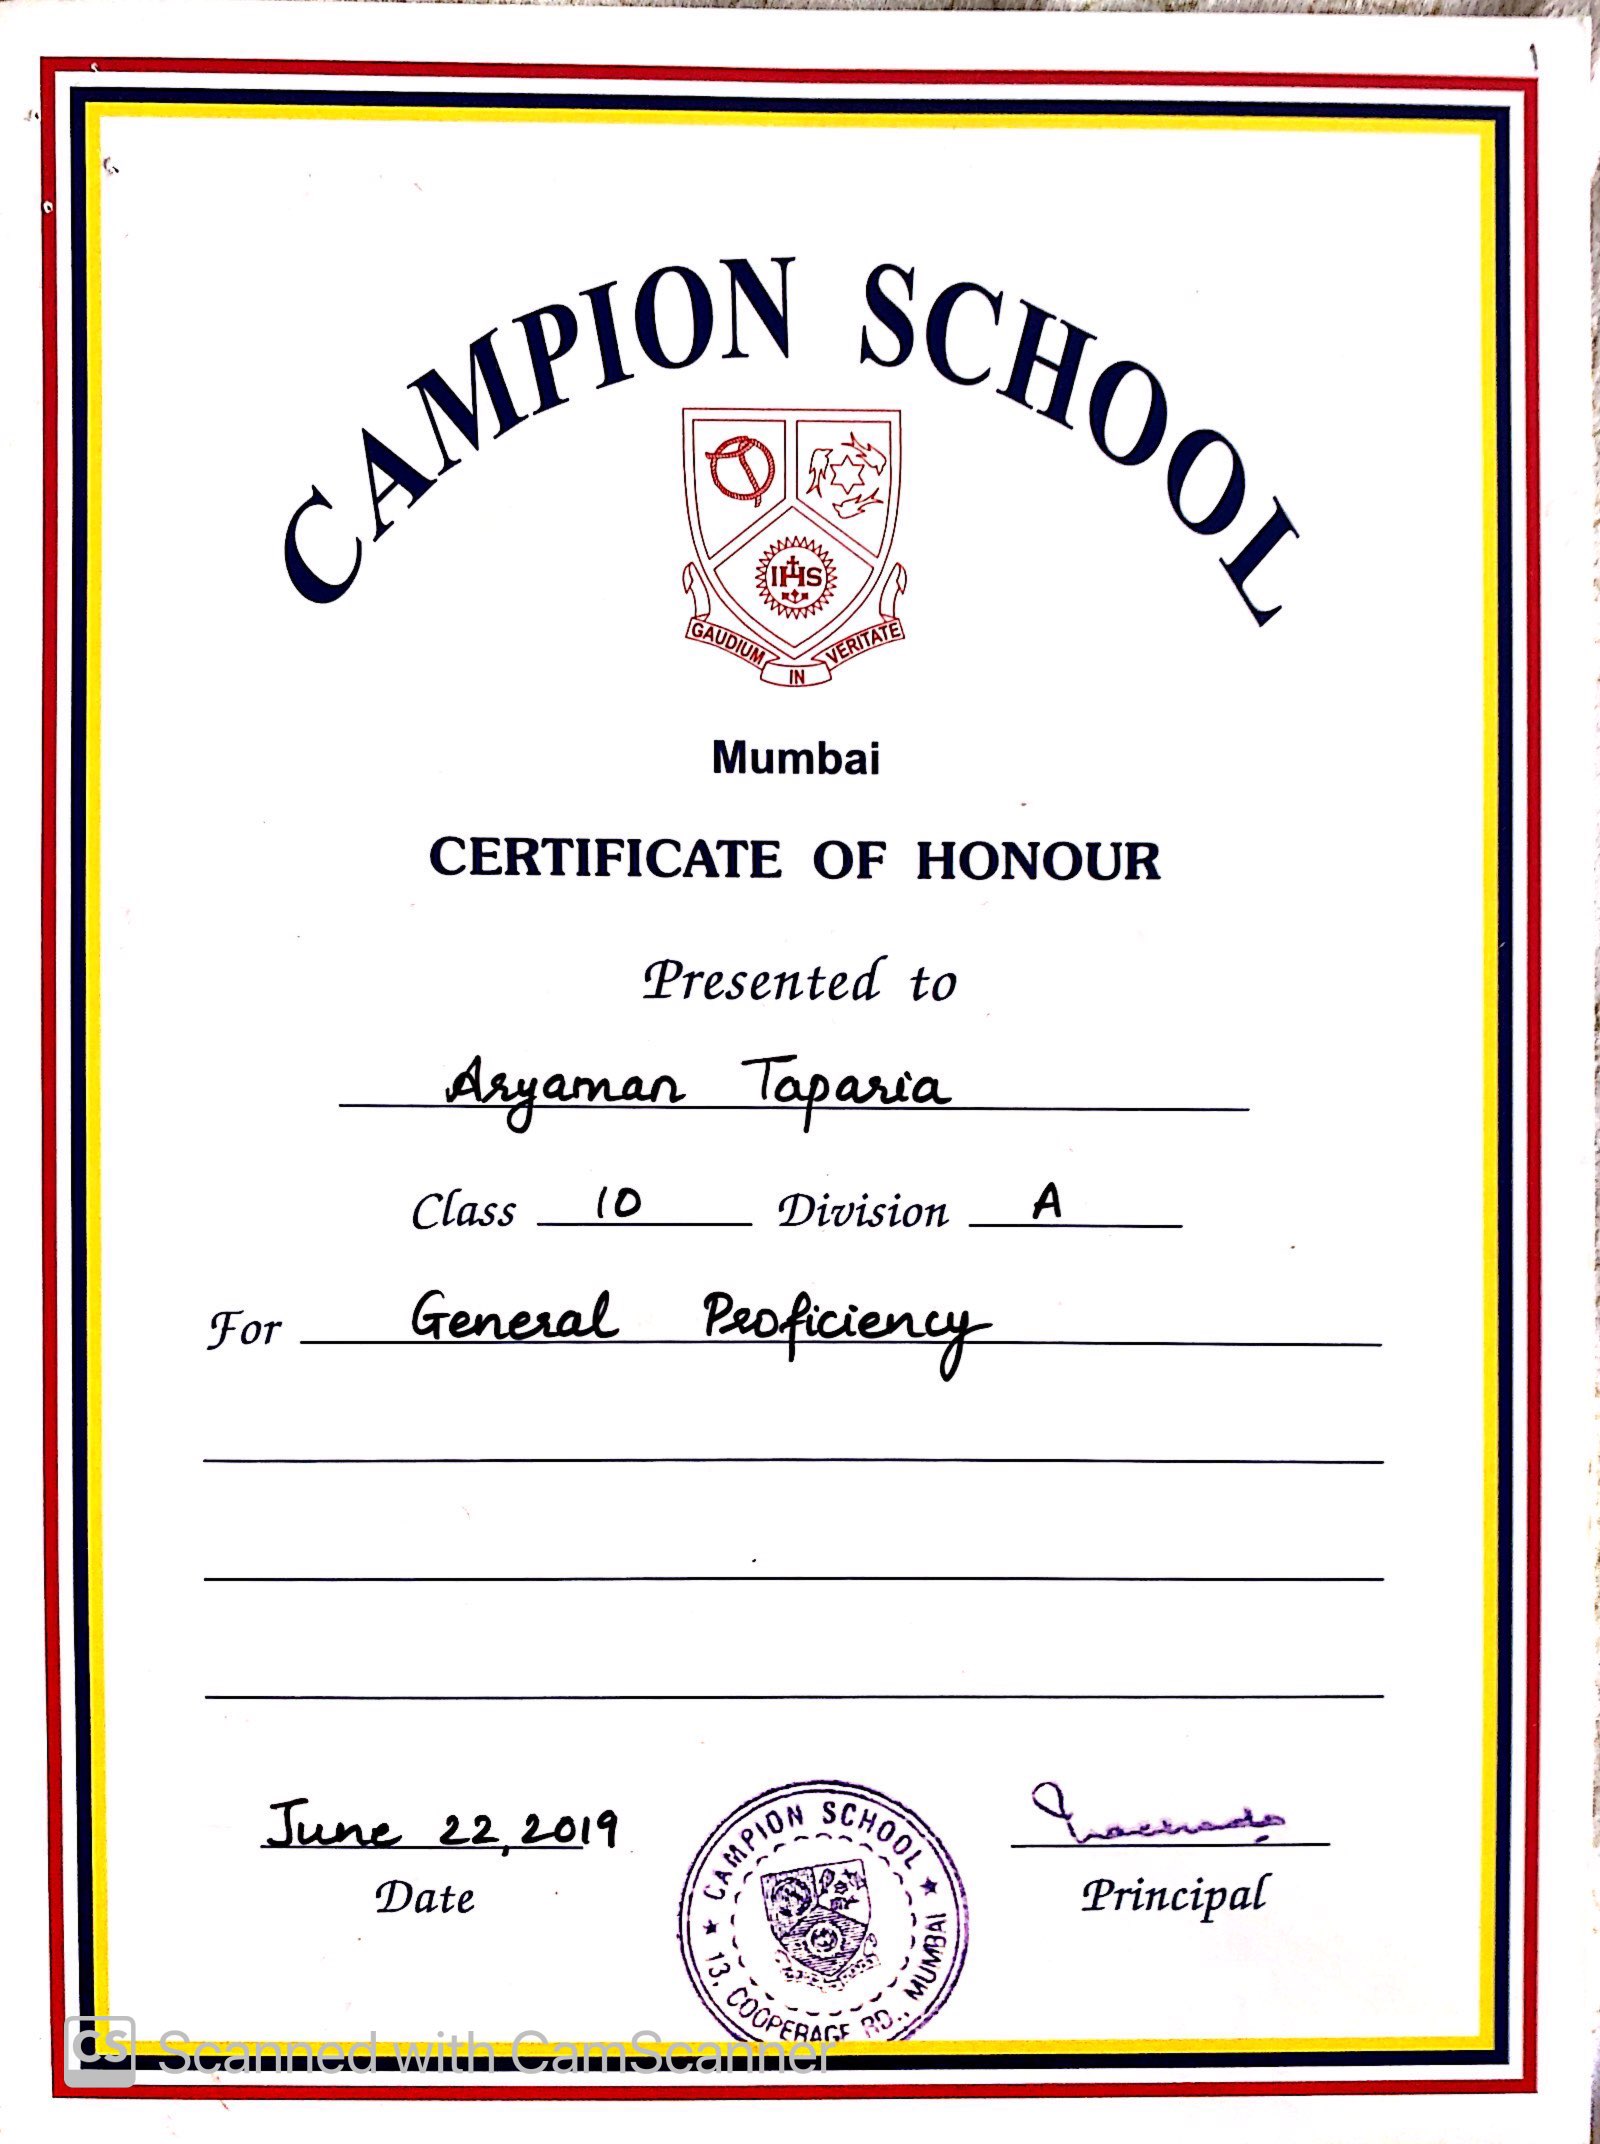 CAMPION SCHOOL
IHS
GAUDIUM IN VERITATE
Mumbai
CERTIFICATE OF HONOUR
Presented to
Aryaman Taparia
Class 10 Division A
For General Proficiency
June 22, 2019
Date
Principal
CAMPION SCHOOL
13, COOPERAGE RD., MUMBAI
CS Scanned with CamScanner